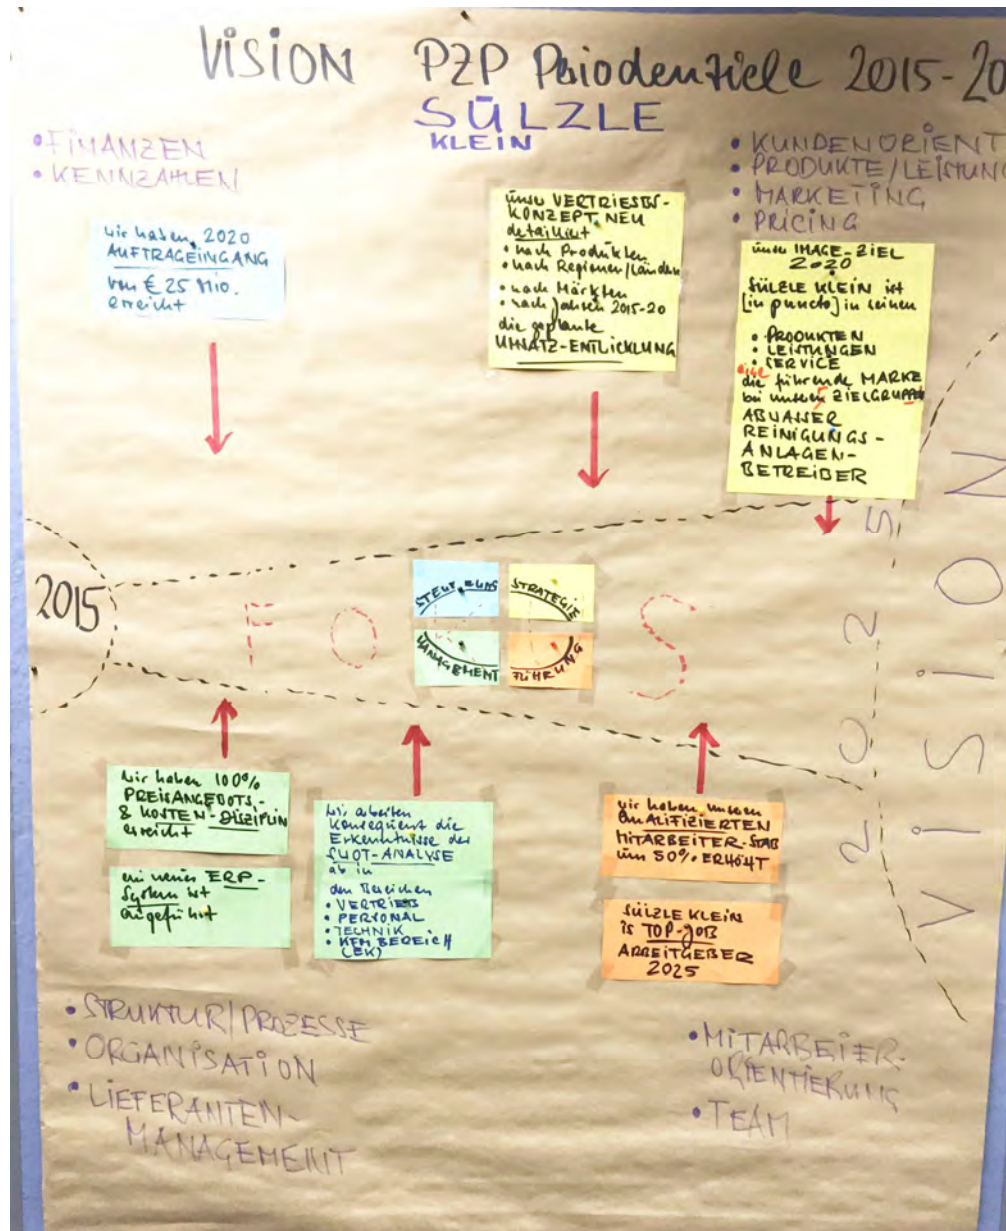 VISION PZP Periodenziele 2015-20
SÜLZLE
KLEIN
• FINANZEN
• KENNZAHLEN
• KUNDENORIENT
• PRODUKTE/LEISTUNG
• MARKETING
• PRICING
wir haben 2020
AUFTRAGEINGANG
von € 25 Mio.
erreicht
unser VERTRIEBS-
KONZEPT NEU
detailliert
• nach Produkten
• nach Regionen/Länder
• nach Märkten
• nach Jahren 2015-20
die geplante
UMSATZ-ENTWICKLUNG
unser IMAGE-ZIEL
2020
SÜLZLE KLEIN ist
[in puncto] in seinen
• PRODUKTEN
• LEISTUNGEN
• SERVICE
die führende MARKE
bei unseren 5 ZIELGRUPPEN
ABWASSER
REINIGUNGS-
ANLAGEN-
BETREIBER
2015
FO S
STEUERUNG
STRATEGIE
MANAGEMENT
FÜHRUNG
2025
VISION
wir haben 100%
PREISANGEBOTS-
& KOSTEN-DISZIPLIN
erreicht
ein neues ERP-
System ist
eingeführt
Wir arbeiten
konsequent die
Erkenntnisse der
SWOT-ANALYSE
ab in
den Bereichen
• VERTRIEB
• PERSONAL
• TECHNIK
• KFM. BEREICH
(EK)
wir haben unseren
QUALIFIZIERTEN
MITARBEITER-STAB
um 50% ERHÖHT
SÜLZLE KLEIN
is TOP-JOB
ARBEITGEBER
2025
• STRUKTUR/PROZESSE
• ORGANISATION
• LIEFERANTEN-
MANAGEMENT
• MITARBEIER-
ORIENTIERUNG
• TEAM